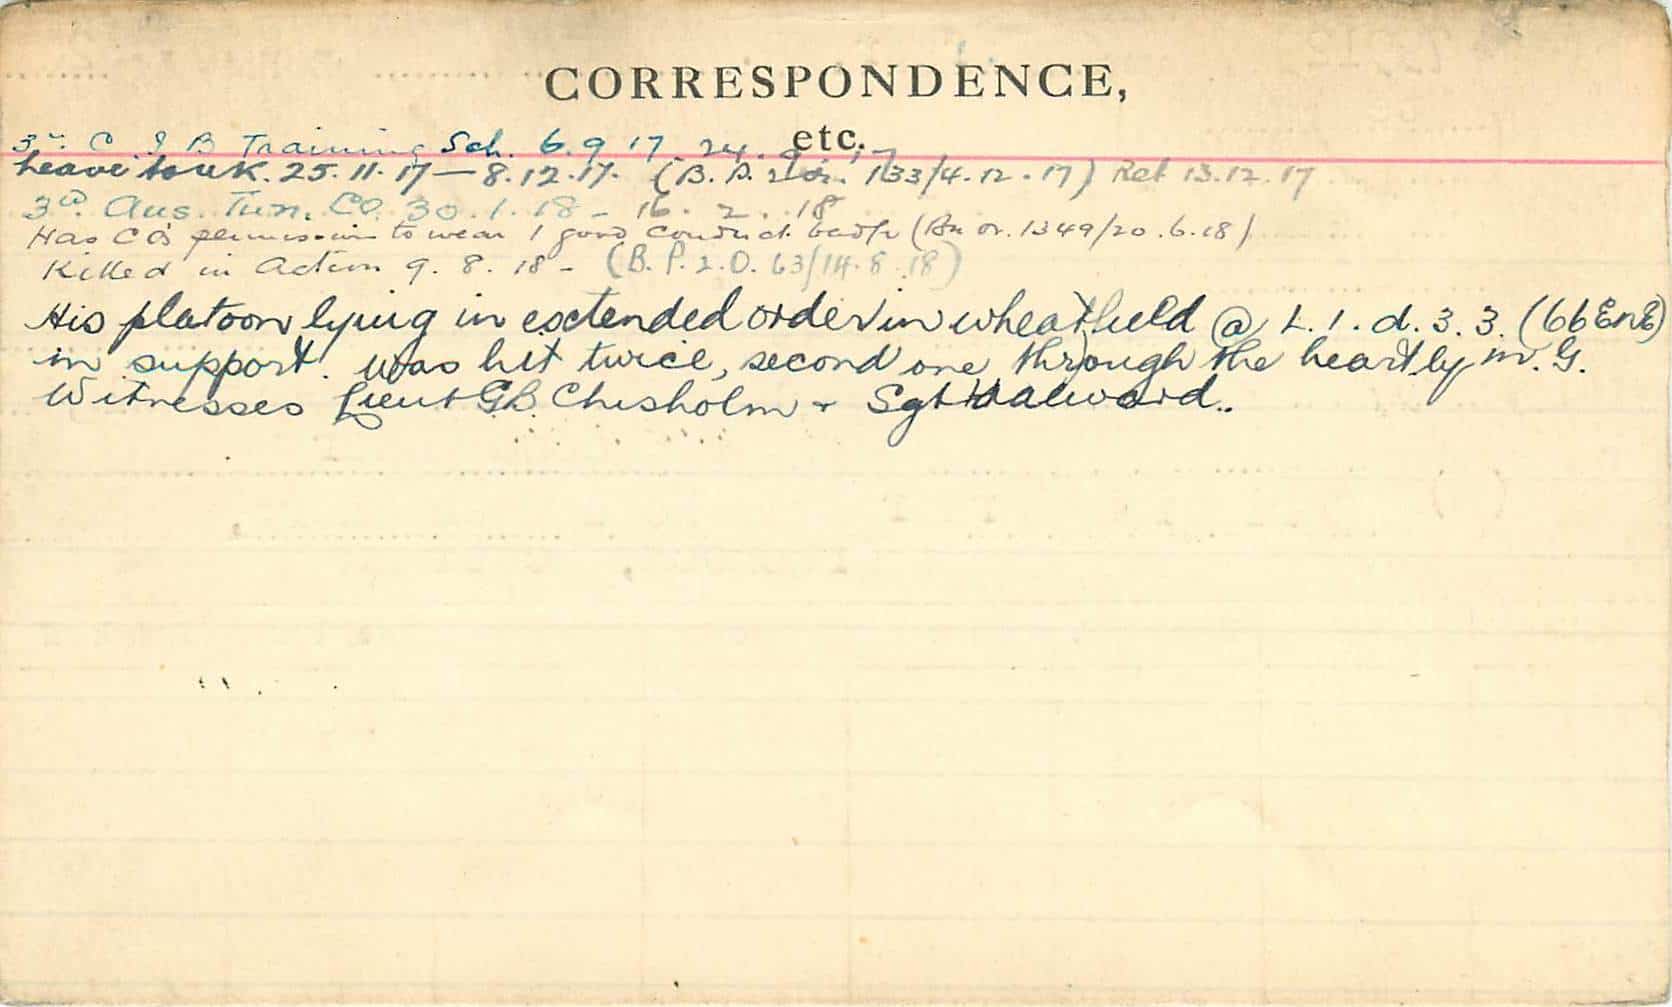 CORRESPONDENCE,
etc.
3rd C I B Training Sch. 6.9.17 24.9.17
Leave to UK. 25.11.17 — 8.12.17. (B.P. 2 or. 133/4.12.17) Ret 13.12.17
3rd Aus. Tun. Co. 30.1.18 - 16.2.18
Has CO's permission to wear 1 good conduct badge (Bn or. 1349/20.6.18)
Killed in Action 9.8.18 - (B.P.2.O. 63/14.8.18)
His platoon lying in extended order in wheatfield @ L.1.d.3.3. (66E NE)
in support. was hit twice, second one through the heart by M.G.
Witnesses Lieut G.B. Chisholm + Sgt